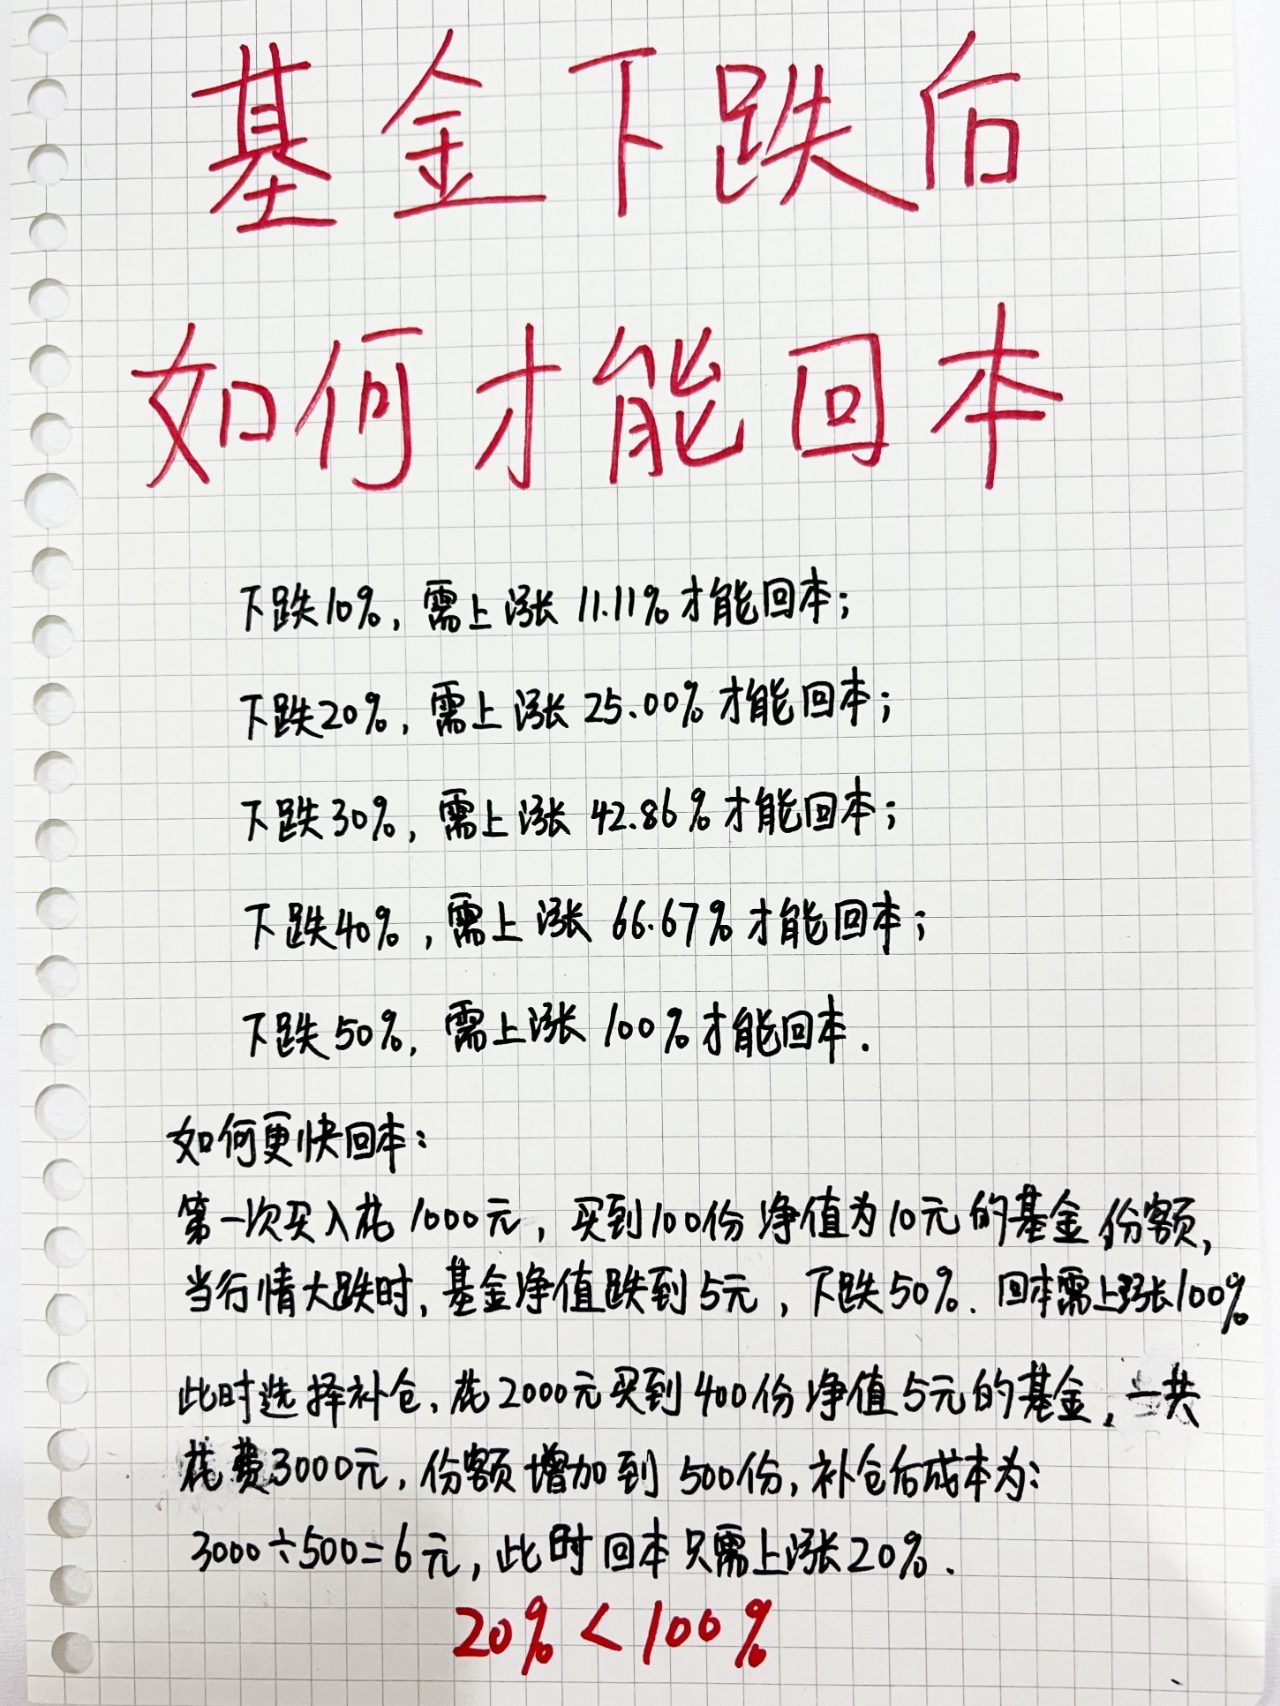 基金下跌后
如何才能回本
下跌10%，需上涨11.11%才能回本；
下跌20%，需上涨25.00%才能回本；
下跌30%，需上涨42.86%才能回本；
下跌40%，需上涨66.67%才能回本；
下跌50%，需上涨100%才能回本.
如何更快回本：
第一次买入花1000元，买到100份净值为10元的基金份额，
当行情大跌时，基金净值跌到5元，下跌50%.回本需上涨100%
此时选择补仓、花2000元买到400份净值5元的基金，一共
花费3000元，份额增加到500份，补仓后成本为：
3000÷500=6元，此时回本只需上涨20%.
20%<100%